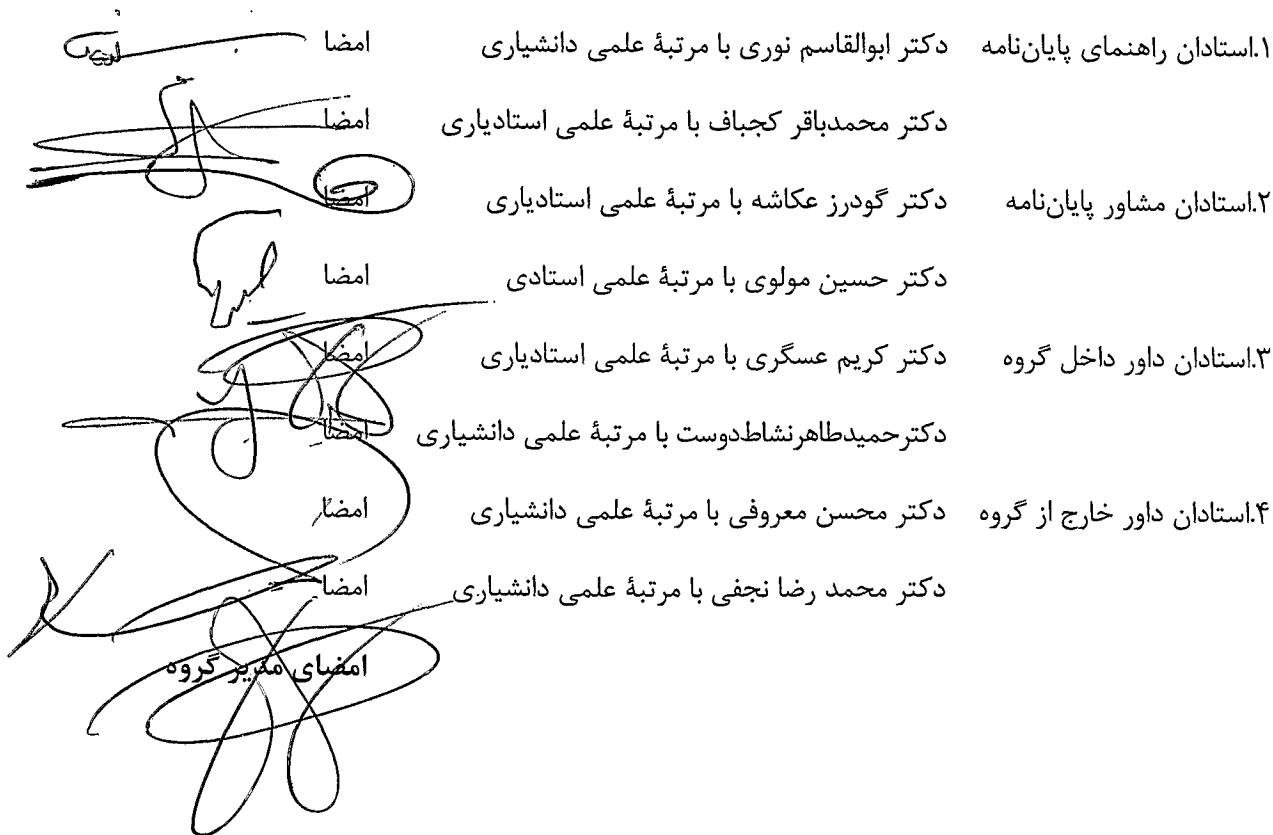 ۱.استادان راهنمای پایان‌نامه دکتر ابوالقاسم نوری با مرتبهٔ علمی دانشیاری امضا
دکتر محمدباقر کجباف با مرتبهٔ علمی استادیاری امضا
۲.استادان مشاور پایان‌نامه دکتر گودرز عکاشه با مرتبهٔ علمی استادیاری امضا
دکتر حسین مولوی با مرتبهٔ علمی استادی امضا
۳.استادان داور داخل گروه دکتر کریم عسگری با مرتبهٔ علمی استادیاری امضا
دکترحمیدطاهرنشاط‌دوست با مرتبهٔ علمی دانشیاری امضا
۴.استادان داور خارج از گروه دکتر محسن معروفی با مرتبهٔ علمی دانشیاری امضا
دکتر محمد رضا نجفی با مرتبهٔ علمی دانشیاری امضا
امضای مدیر گروه